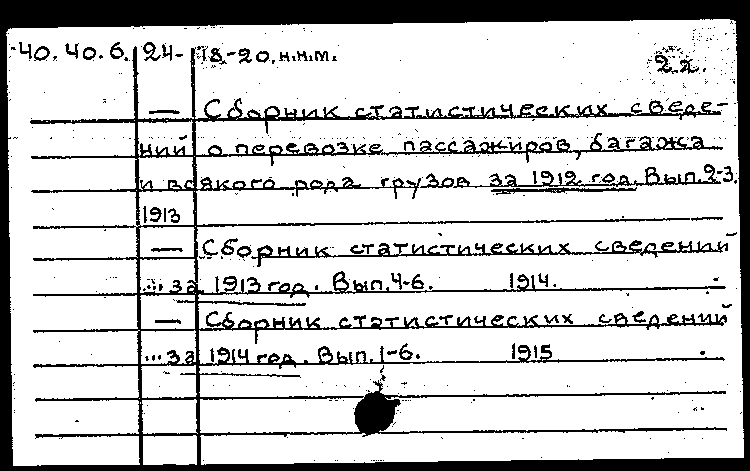 40.40.6. 24- 18-20.н.н.м.
2.2.
— Сборник статистических сведе-
ний о перевозке пассажиров, багажа
и всякого рода грузов за 1912 год. Вып.2-3.
1913
— Сборник статистических сведений
... за 1913 год. Вып.4-6. 1914.
— Сборник статистических сведений
... за 1914 год. Вып.1-6. 1915